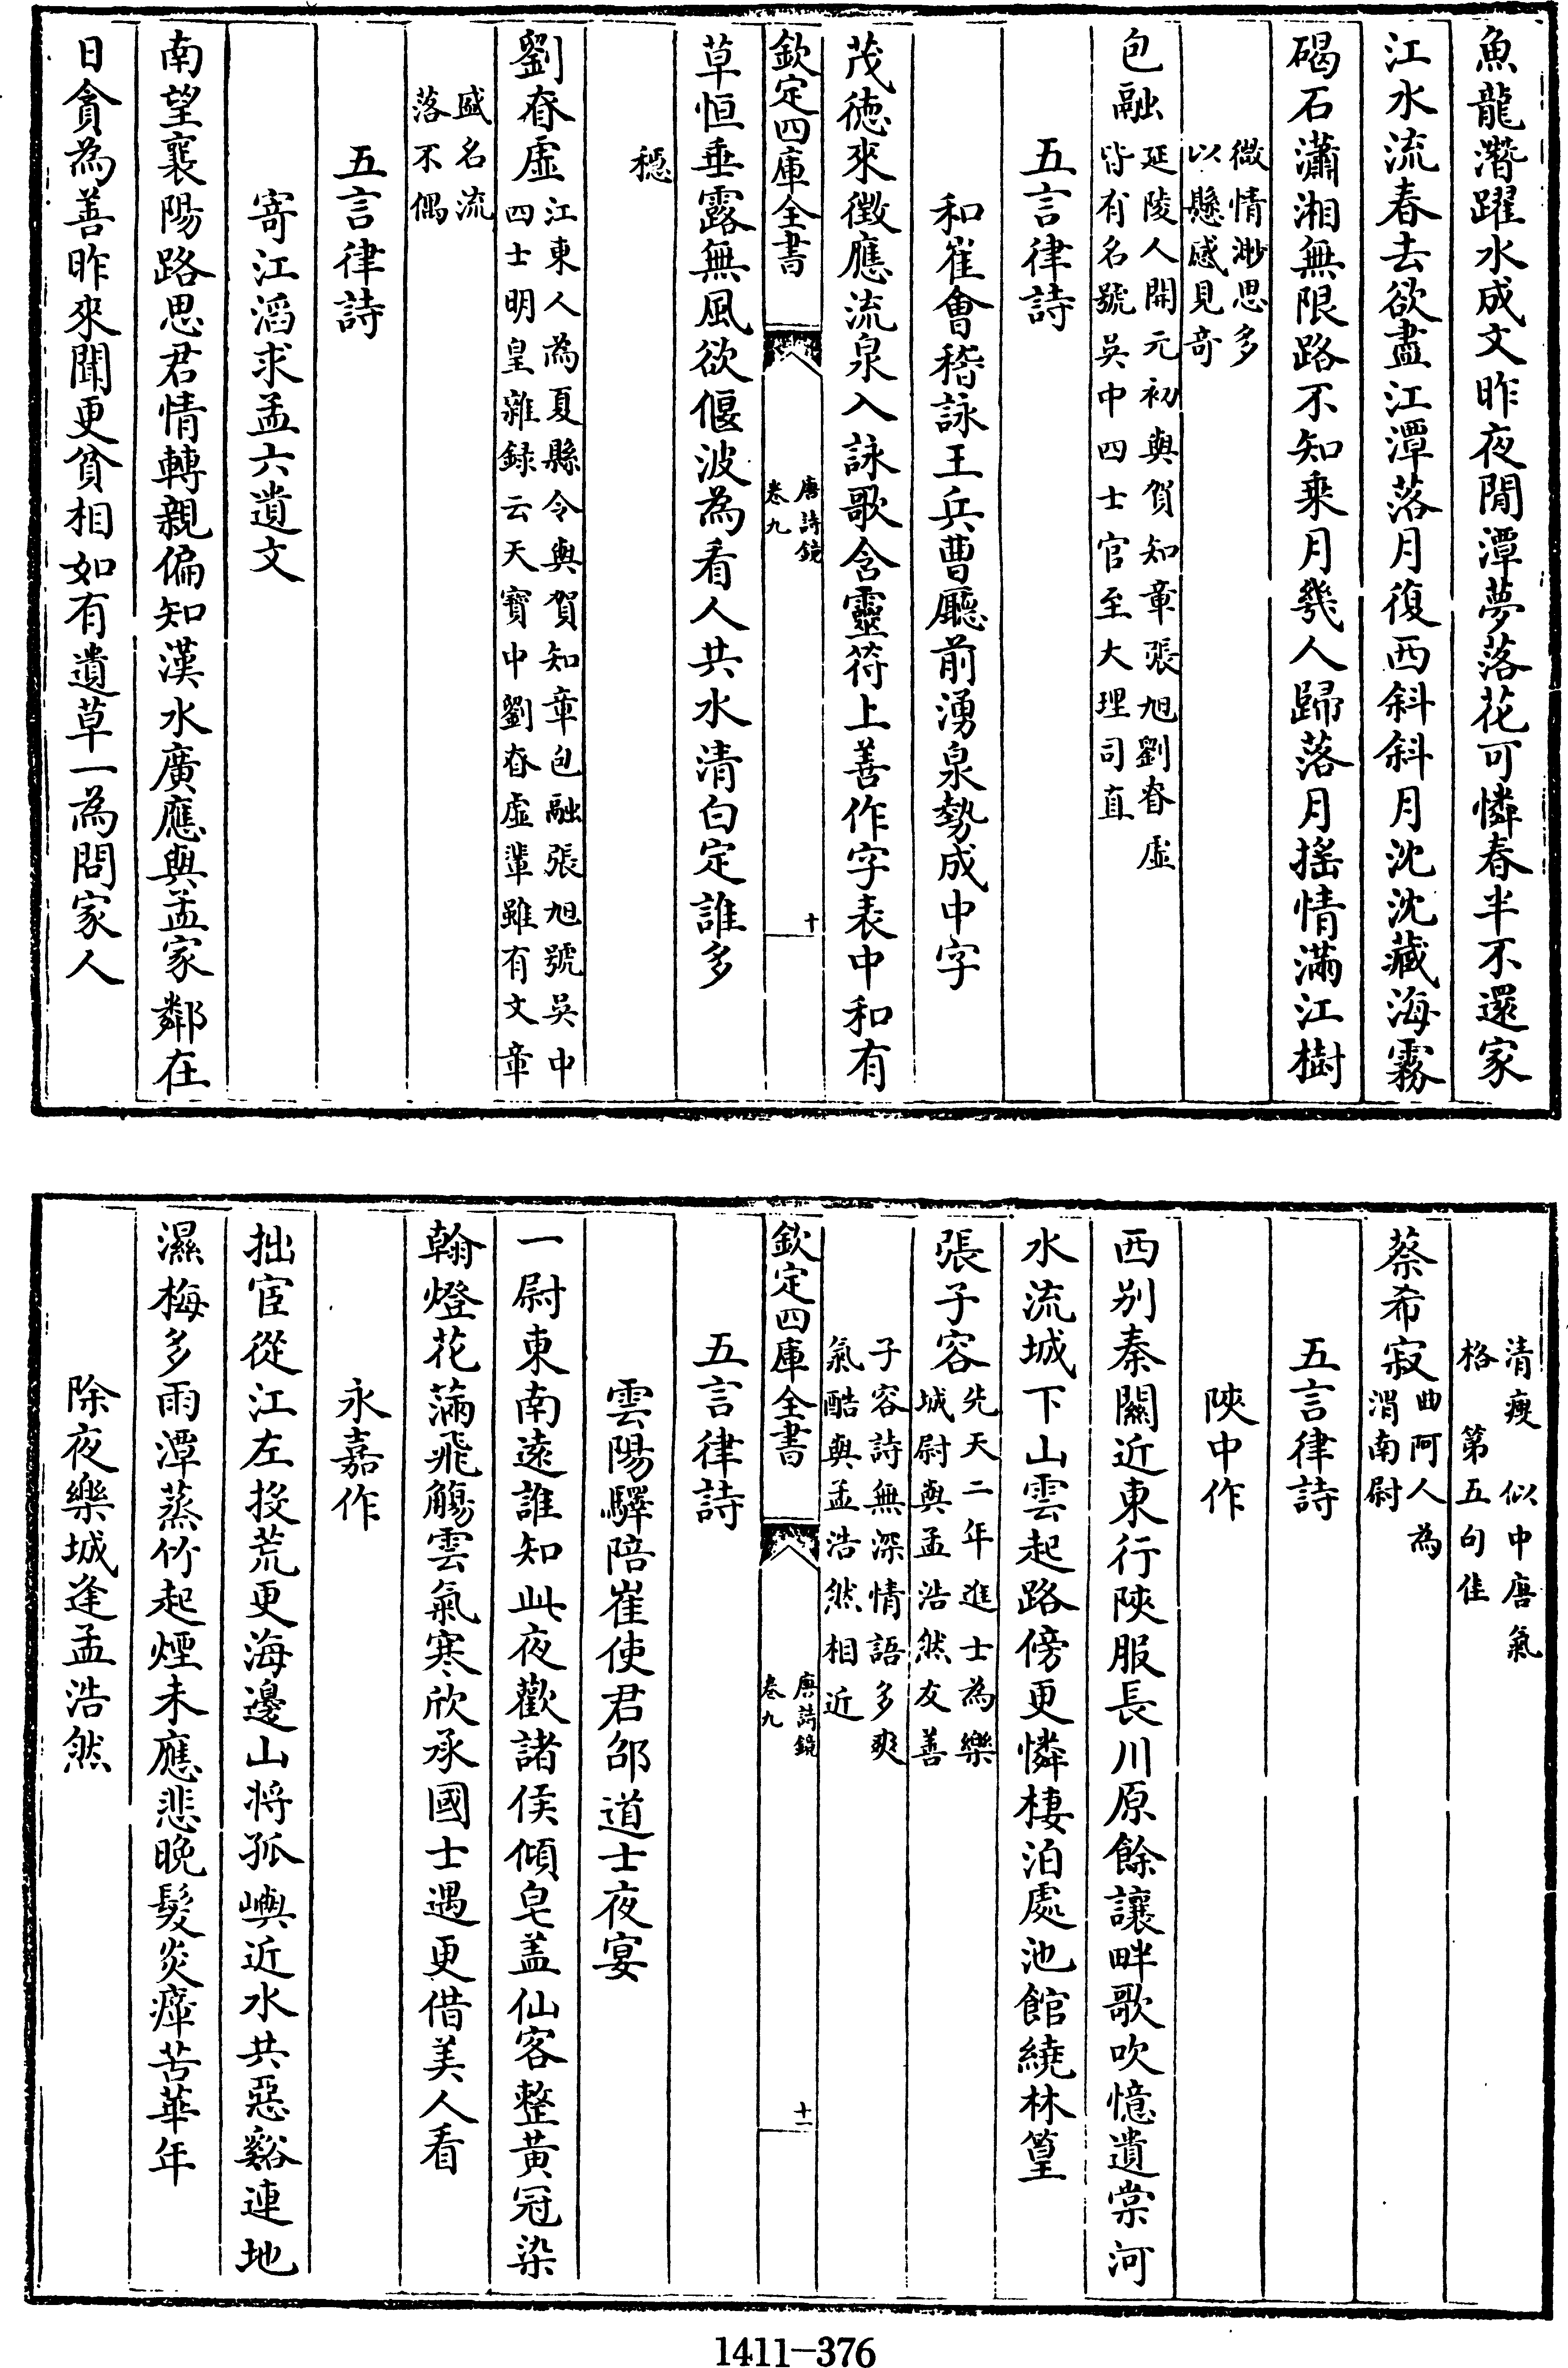 魚龍潛躍水成文昨夜閒潭夢落花可憐春半不還家
江水流春去欲盡江潭落月復西斜斜月沈沈藏海霧
碣石瀟湘無限路不知乗月幾人歸落月揺情滿江樹
微情渺思多
以懸感見竒
包融延陵人開元初與賀知章張旭劉眘虛
皆有名號吳中四士官至大理司直
五言律詩
和崔會稽詠王兵曹廳前湧泉勢成中字
茂徳來徵應流泉入詠歌含靈符上善作字表中和有
欽定四庫全書
唐詩鏡
卷九
十
草恒垂露無風欲偃波為看人共水清白定誰多
穩
劉眘虛江東人為夏縣令與賀知章包融張旭號吳中
四士明皇雜録云天寳中劉眘虛輩雖有文章
盛名流
落不偶
五言律詩
寄江滔求孟六遺文
南望襄陽路思君情轉親偏知漢水廣應與孟家鄰在
日貪為善昨來聞更貧相如有遺草一為問家人
清瘦似中唐氣
格第五句佳
蔡希寂曲阿人為
渭南尉
五言律詩
陜中作
西别秦關近東行陜服長川原餘讓畔歌吹憶遺棠河
水流城下山雲起路傍更憐棲泊處池館繞林篁
張子容先天二年進士為樂
城尉與孟浩然友善
子容詩無深情語多爽
氣酷與孟浩然相近
欽定四庫全書
唐詩鏡
卷九
十一
五言律詩
雲陽驛陪崔使君邵道士夜宴
一尉東南遠誰知此夜歡諸侯傾皂盖仙客整黃冠染
翰燈花滿飛觴雲氣寒欣承國士遇更借美人看
永嘉作
拙宦從江左投荒更海邊山將孤嶼近水共惡谿連地
濕梅多雨潭蒸竹起煙未應悲晚髮炎瘴苦華年
除夜樂城逢孟浩然
1411-376